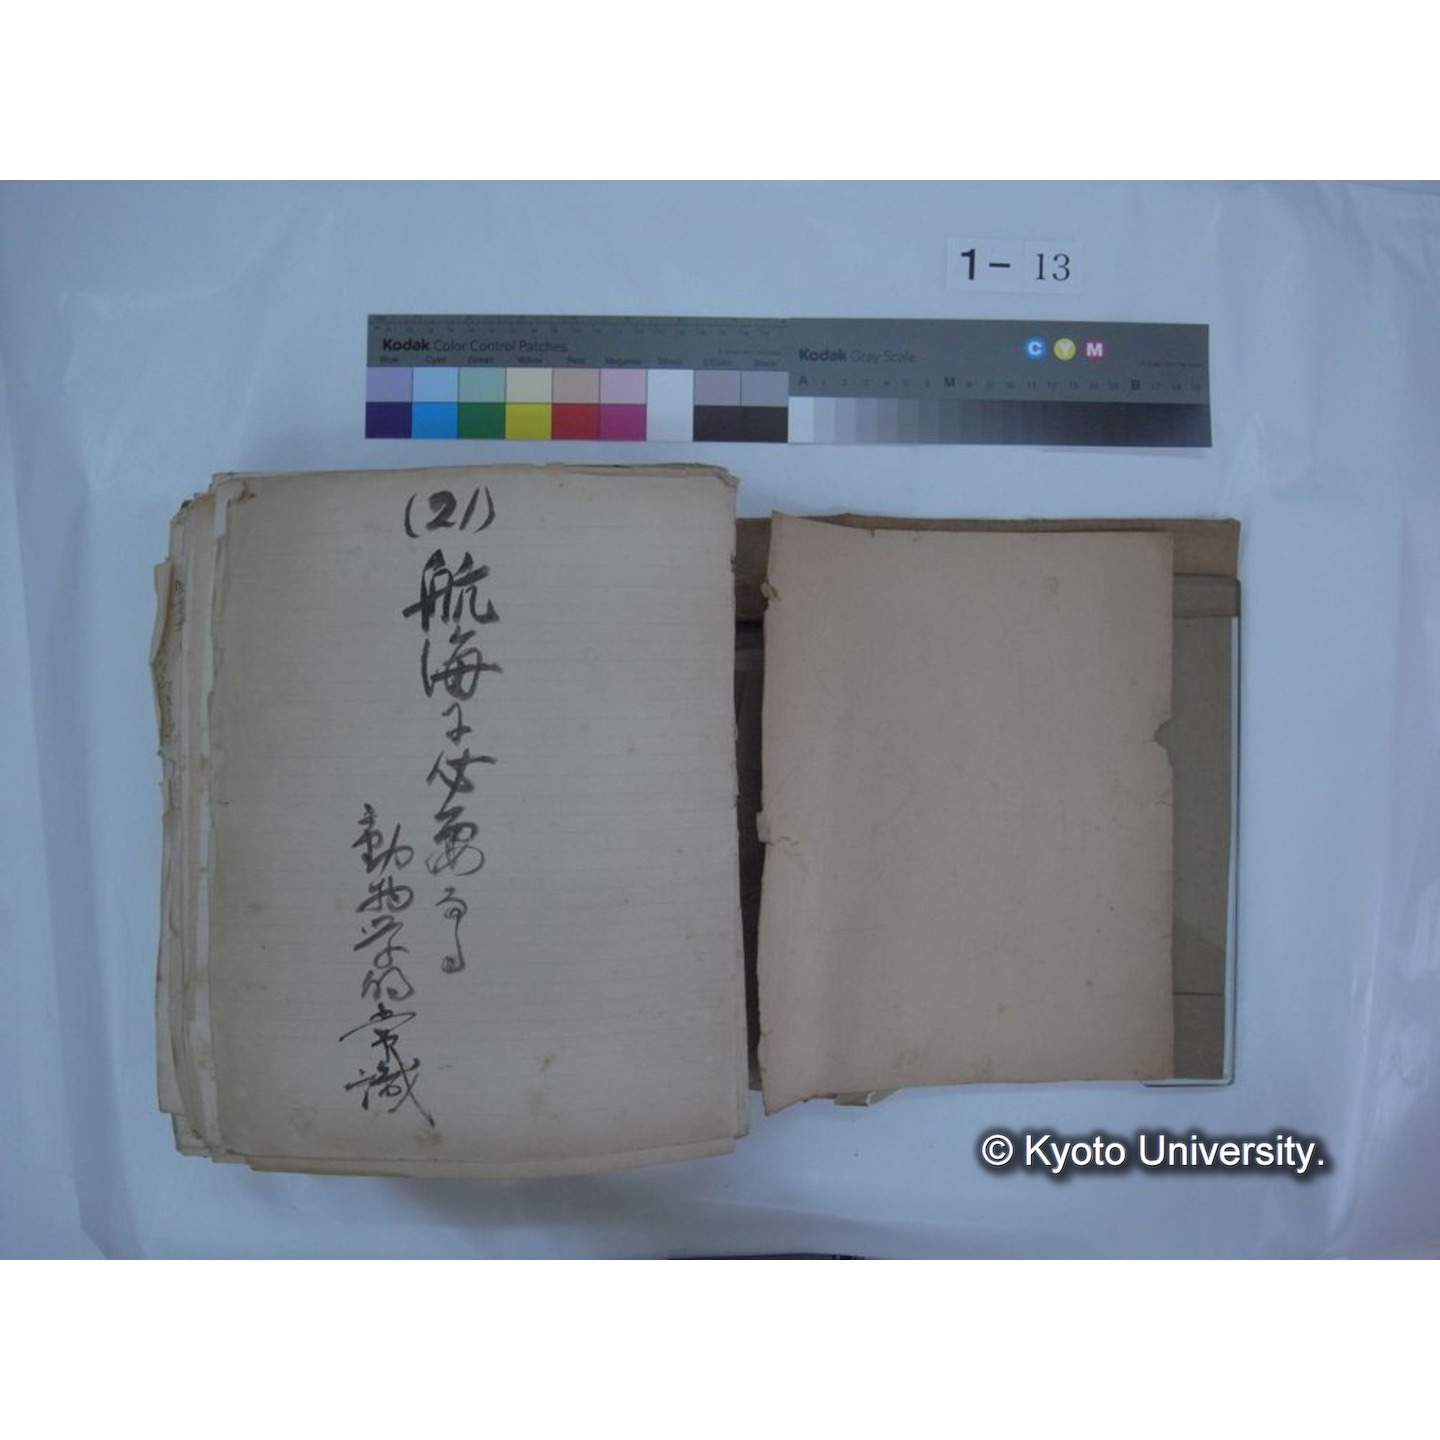 1- 13
Kodak Color Control Patches
Blue Cyan Green Yellow Red Magenta White 3/Color Black
Kodak Gray Scale
C Y M
A 1 2 3 4 5 6 M 8 9 10 11 12 13 14 15 B 17 18 19
(21)
航海に必要なる
動物学的常識
© Kyoto University.